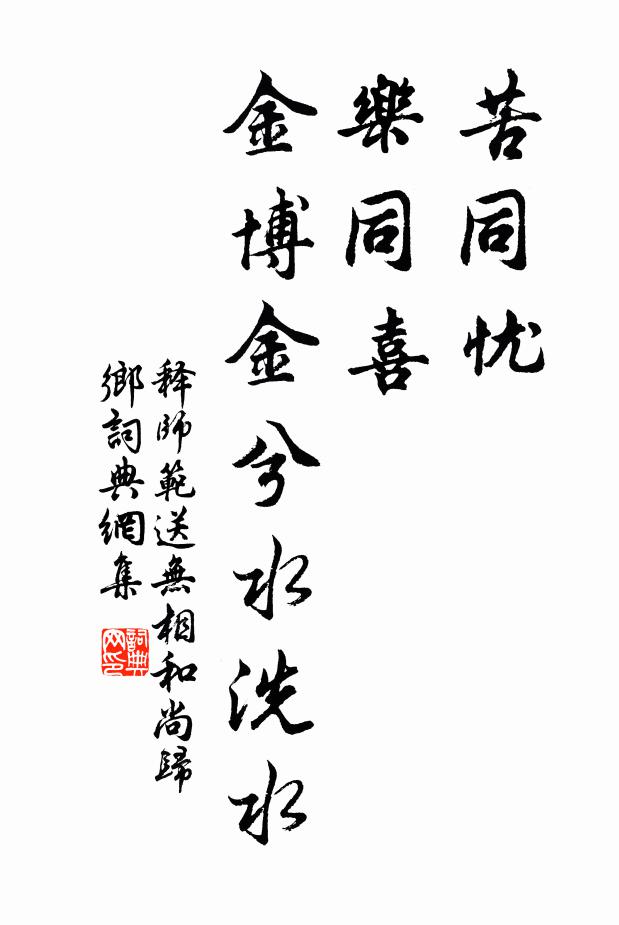 苦同忧
樂同喜
金博金兮水洗水
释師範送無相和尚歸
鄉詞典網集
詞典网印